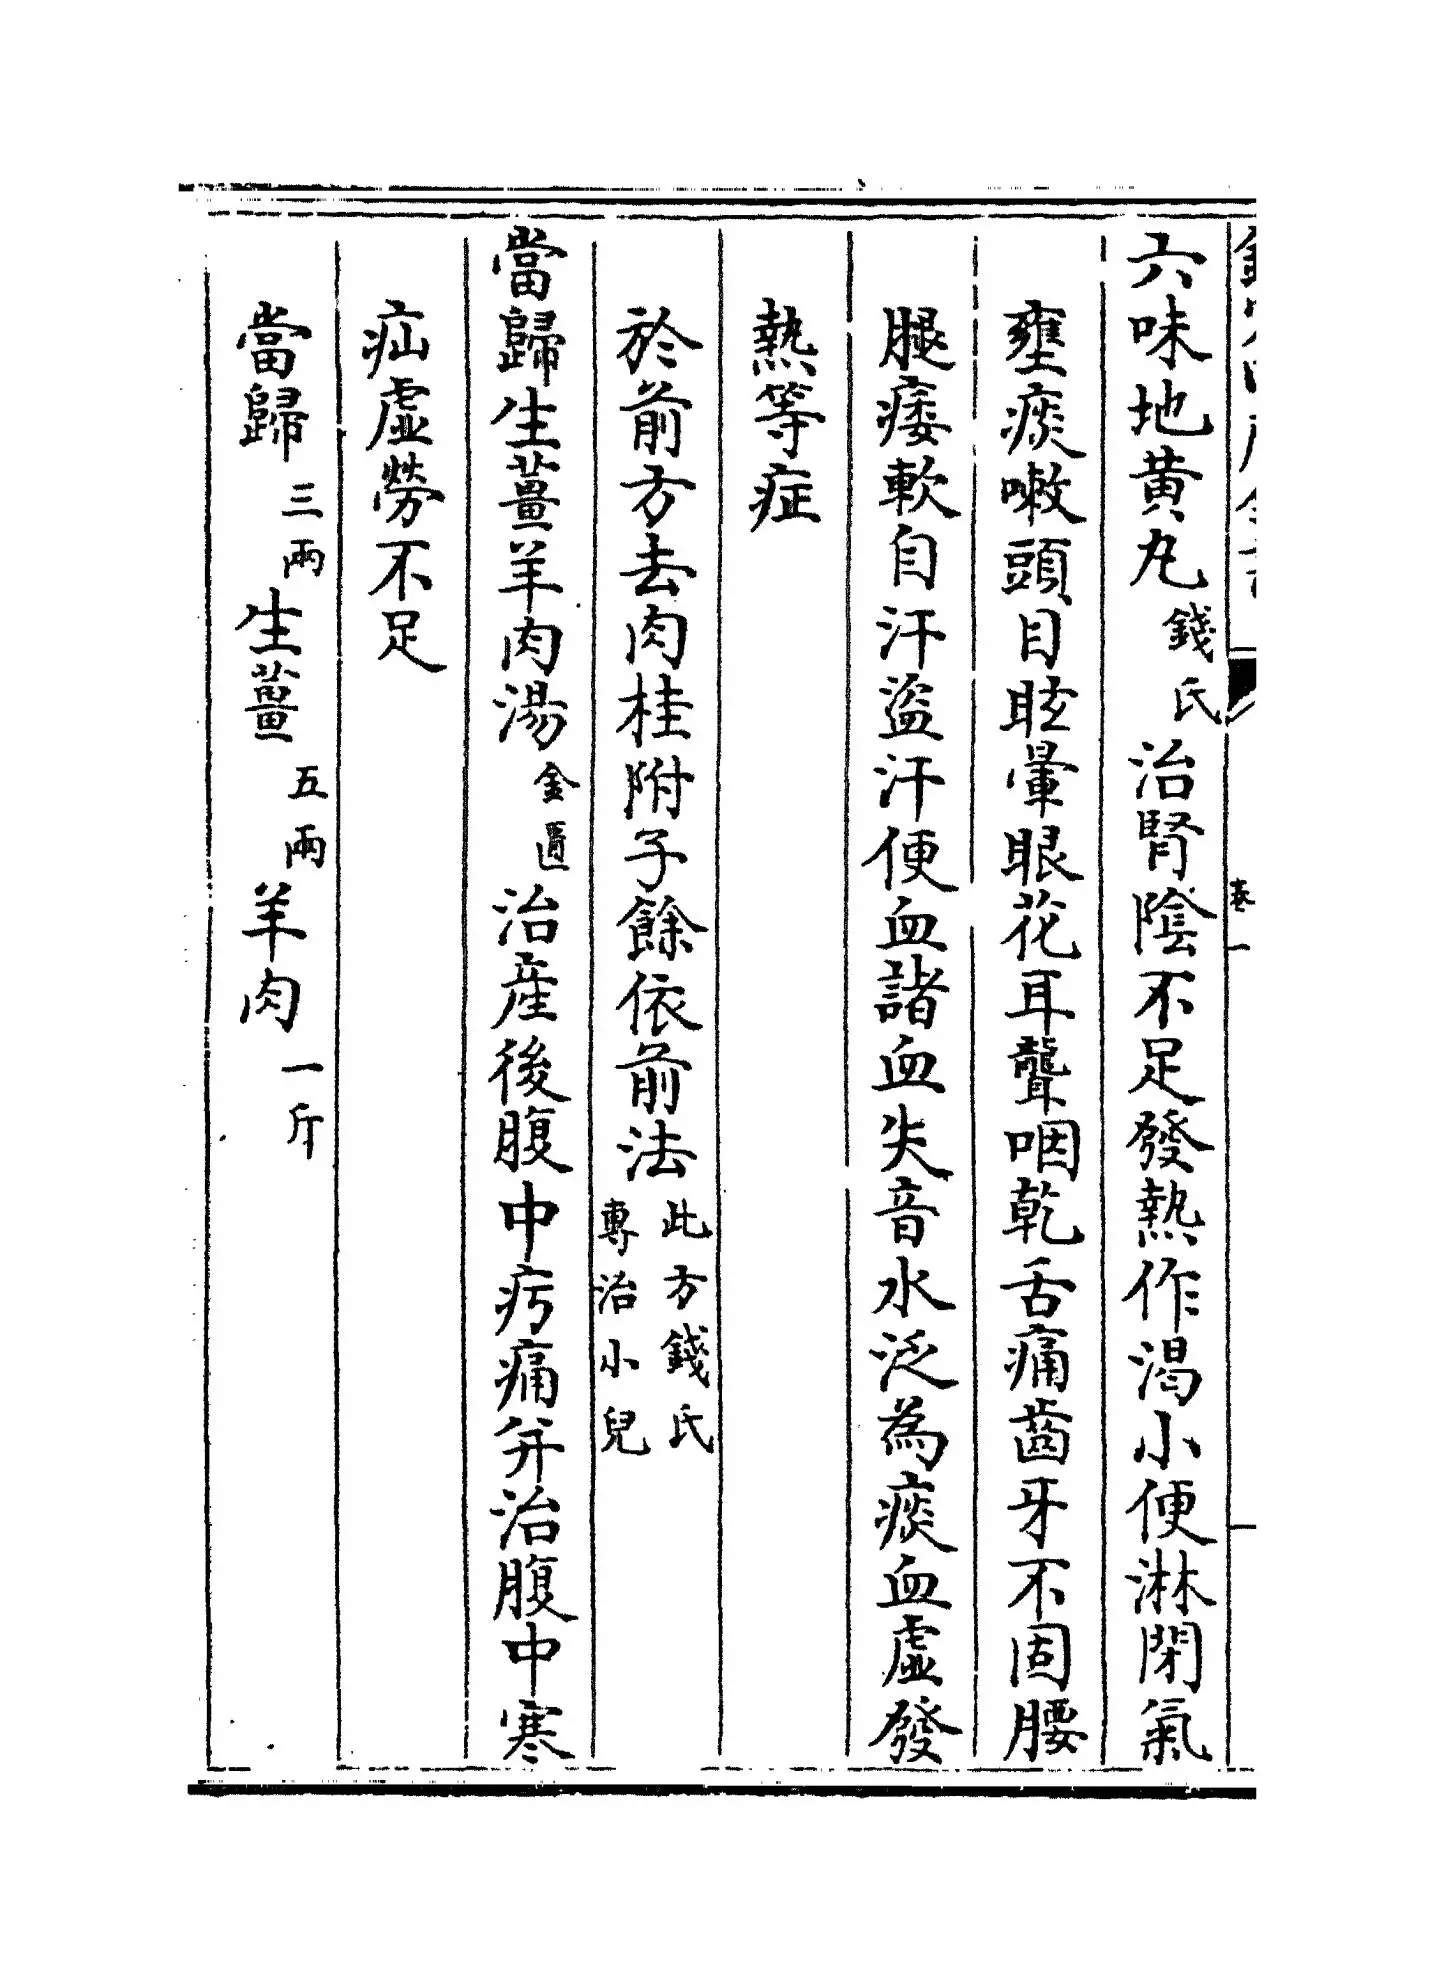 六味地黄丸錢氏治腎陰不足發熱作渴小便淋閉氣
壅痰嗽頭目眩暈眼花耳聾咽乾舌痛齒牙不固腰
腿痿軟自汗盜汗便血諸血失音水泛為痰血虛發
熱等症
於前方去肉桂附子餘依前法此方錢氏專治小兒
當歸生薑羊肉湯金匱治産後腹中㽲痛并治腹中寒
疝虛勞不足
當歸三兩生薑五兩羊肉一斤
卷一